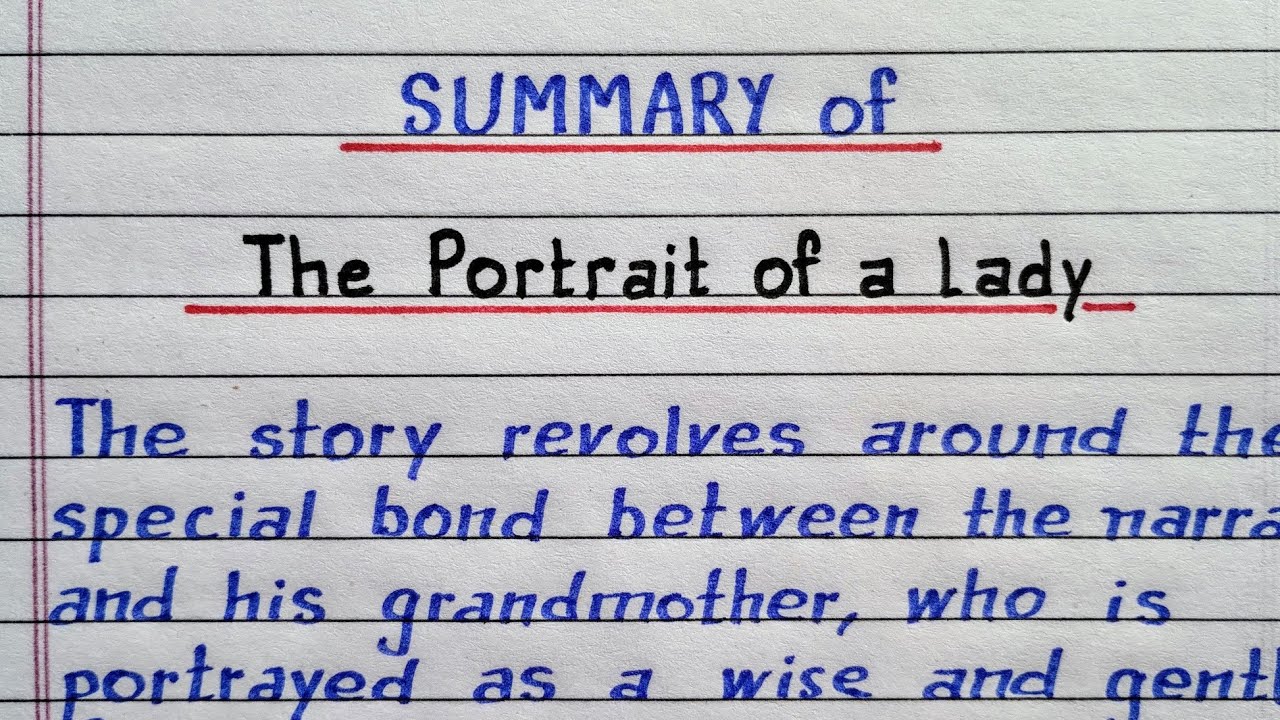 SUMMARY of
The Portrait of a Lady
The story revolves around the
special bond between the narra
and his grandmother, who is
portrayed as a wise and gentl